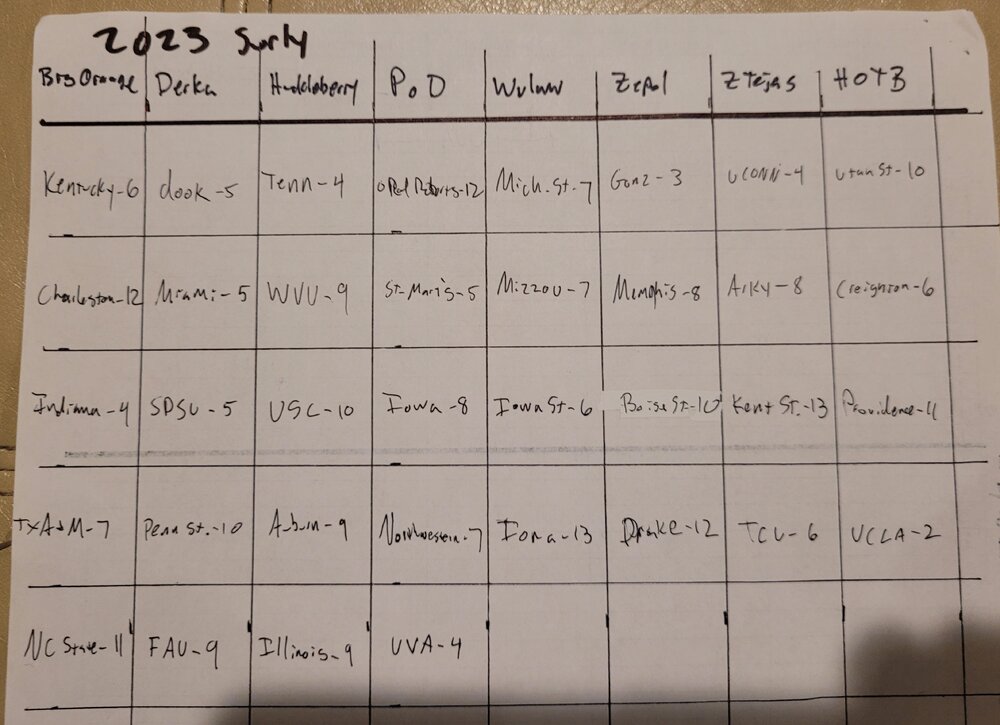 2023 Surly
Big Orange Derka Huckleberry PoD Wulaw Zepol ZTejas HOTB
Kentucky-6 dook-5 Tenn-4 oRal Roberts-12 Mich. St.-7 Gonz-3 UCONN-4 Utah St-10
Charleston-12 Miami-5 WVU-9 St. Mari's-5 Mizzou-7 Memphis-8 Arky-8 Creighton-6
Indiana-4 SDSU-5 USC-10 Iowa-8 Iowa St-6 Boise St-10 Kent St.-13 Providence-11
TxA+M-7 Penn St.-10 Auburn-9 Northwestern-7 Iona-13 Drake-12 TCU-6 UCLA-2
NC State-11 FAU-9 Illinois-9 UVA-4